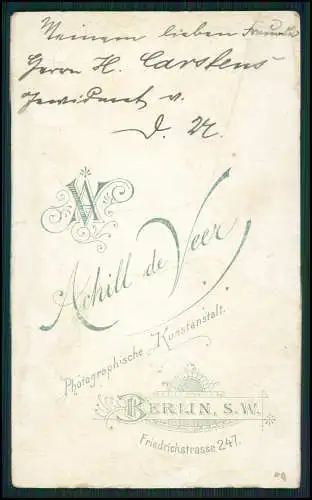 Meinem lieben Freunde
Herrn H. Carstens
gewidmet v.
AV
Achill de Veer
Photographische Kunstanstalt.
BERLIN, S.W.
Friedrichstrasse 247.